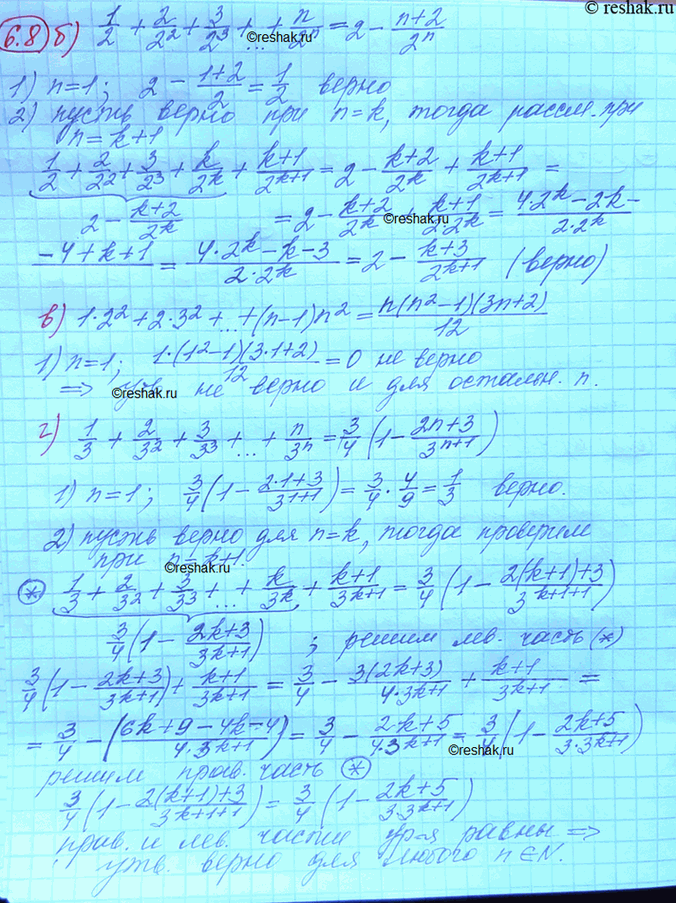 © reshak.ru
6.8) б) 1/2 + 2/2² + 3/2³ + ... + n/2ⁿ = 2 - (n+2)/2ⁿ
© reshak.ru
1) n=1; 2 - (1+2)/2 = 1/2 верно
2) пусть верно при n=k, тогда рассм. при
n=k+1
1/2 + 2/2² + 3/2³ + k/2ᵏ + (k+1)/2ᵏ⁺¹ = 2 - (k+2)/2ᵏ + (k+1)/2ᵏ⁺¹ =
2 - (k+2)/2ᵏ = 2 - (k+2)/2ᵏ + (k+1)/(2·2ᵏ) = (4·2ᵏ - 2k -
© reshak.ru
-4+k+1)/ = (4·2ᵏ - k - 3)/(2·2ᵏ) = 2 - (k+3)/2ᵏ⁺¹ (верно)
в) 1·2² + 2·3² + ... + (n-1)n² = n(n²-1)(3n+2)/12
1) n=1; 1·(1²-1)(3·1+2)/12 = 0 не верно
⇒ утв. не верно и для остальн. n.
© reshak.ru
г) 1/3 + 2/3² + 3/3³ + ... + n/3ⁿ = 3/4 (1 - (2n+3)/3ⁿ⁺¹)
1) n=1; 3/4 (1 - (2·1+3)/3¹⁺¹) = 3/4 · 4/9 = 1/3 верно.
2) пусть верно для n=k, тогда проверим
при n=k+1.
© reshak.ru
(*) 1/3 + 2/3² + 3/3³ + ... + k/3ᵏ + (k+1)/3ᵏ⁺¹ = 3/4 (1 - (2(k+1)+3)/3ᵏ⁺¹⁺¹)
3/4 (1 - (2k+3)/3ᵏ⁺¹) ; решим лев. часть (*)
3/4 (1 - (2k+3)/3ᵏ⁺¹) + (k+1)/3ᵏ⁺¹ = 3/4 - 3(2k+3)/(4·3ᵏ⁺¹) + (k+1)/3ᵏ⁺¹ =
= 3/4 - (6k+9-4k-4)/(4·3ᵏ⁺¹) = 3/4 - (2·k+5)/(4·3ᵏ⁺¹) = 3/4 (1 - (2k+5)/(3·3ᵏ⁺¹))
© reshak.ru
решим прав. часть (*)
3/4 (1 - (2(k+1)+3)/3ᵏ⁺¹⁺¹) = 3/4 (1 - (2k+5)/(3·3ᵏ⁺¹))
прав. и лев. части ур-я равны ⇒
утв. верно для любого n∈N.